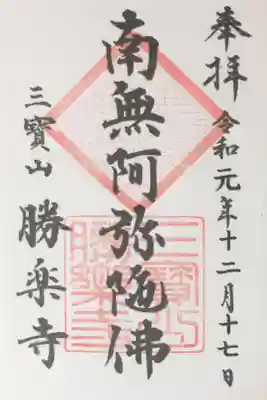 奉拝 令和元年十二月十七日
南無阿弥陀佛
三寳山 勝楽寺
三寳山勝楽寺